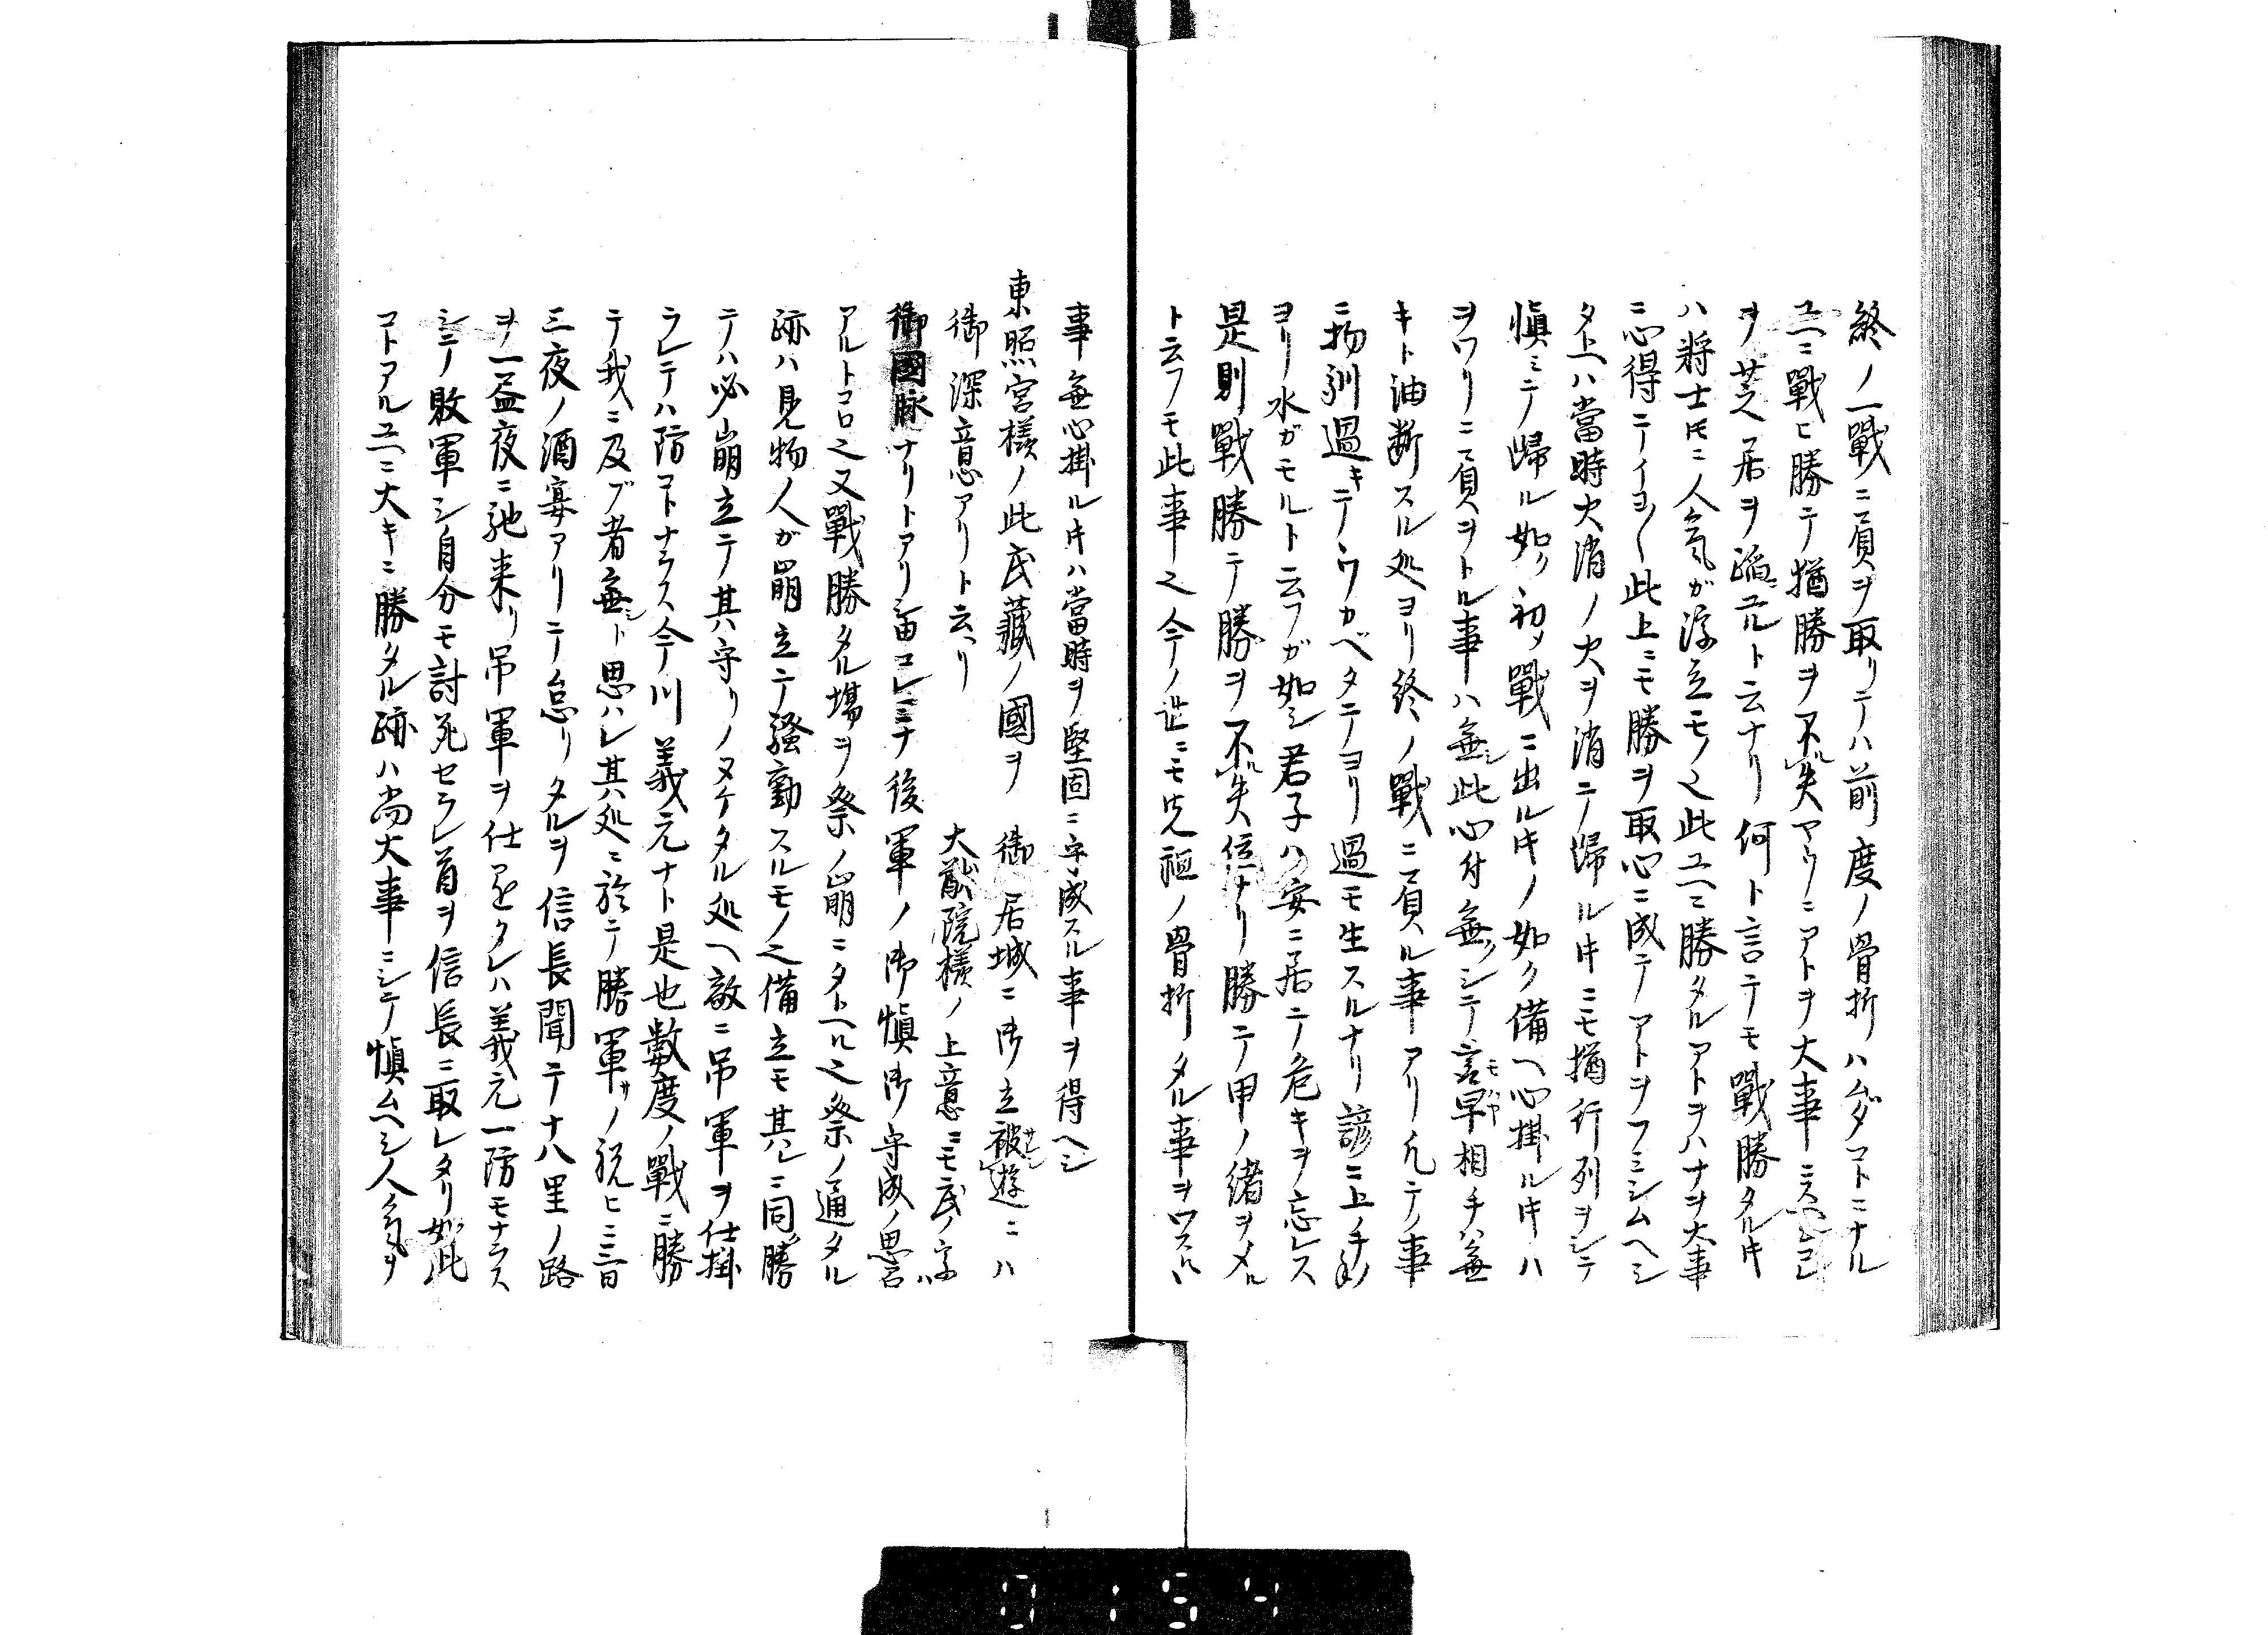 終ノ一戰ニ負ヲ取リテハ前度ノ骨折ハムダコトニナル
ユヘニ戰ヒ勝テ猶勝ヲ不失アヤウニアトヲ大事ニスヘシ
ヲ芝居ヲ踏ユルト云ナリ何ト言テモ戰勝タル片
ハ將士ニ人氣ガ浮立モノ之此ユヘニ勝タルアトヲハナヲ大事
ニ心得テイヨ〱此上ニモ勝ヲ取心ニ成テアトヲフミシムヘシ
タトヘハ當時火消ノ火ヲ消テ歸ル片ニモ猶行列ヲシテ
愼ミテ歸ル如ク初メ戰ニ出ル片ノ如ク備ヘ心掛ル片ハ
ヲワリニ負ヲトル事ハ無シ此心付無シテ言早相手ハ無
キト油断スル処ヨリ終ノ戰ニ負ル事アリ凡テノ事
ニ物訓過キテノウカベタテヨリ過モ生スルナリ諺ニ上手ノ手
ヨリ水ガモルト云フガ如シ君子ハ安ニ居テ危キヲ忘レス
是則戰勝テ勝ヲ不失位ナリ勝テ甲ノ緒ヲメル
ト云フモ此事之今ノ世ニモ先祖ノ骨折タル事ヲワスレ
事無心掛ル片ハ當時ヲ堅固ニ守成スル事ヲ得ヘシ
東照宮様ノ此武藏ノ國ヲ 御居城ニ御立被遊ニハ
御深意アリト云ヘリ 大猷院様ノ上意ニモ武ノ字ハ
御國脉ナリトアリシ由コレミナ後軍ノ御愼御守成ノ思召
アルトコロ之又戰勝タル場ヲ祭ノ崩ニタトヘル之祭ノ通タル
跡ハ見物人ガ崩立テ騷動スルモノ之備立モ其レニ同勝
テハ必崩立テ其守リノヌケタル処ヘ敵ニ吊軍ヲ仕掛
ラレテハ防コトナラス今川義元ナト是也数度ノ戰ニ勝
テ我ニ及ブ者無シト思ハレ其処ニ於テ勝軍ノ祝ヒニ三日
三夜ノ酒宴アリテ怠リタルヲ信長聞テ十八里ノ路
ヲ一盃夜ニ馳来リ吊軍ヲ仕マヲクレハ義元一防モナラス
シテ敗軍シ自分モ討死セラレ首ヲ信長ニ取レタリ如此
コトアルユヘニ大キニ勝タル跡ハ尚大事ニシテ愼ムヘシ人氣ヲ
0154